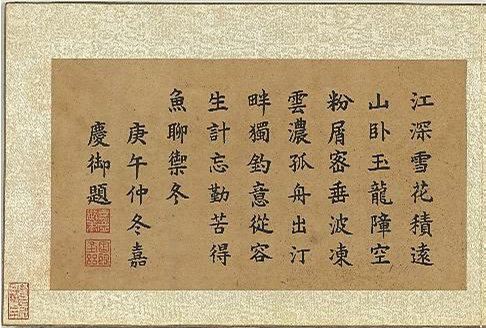 江深雪花積遠
山卧玉龍障空
粉屑密垂波凍
雲濃孤舟出汀
畔獨釣意從容
生計忘勤苦得
魚聊禦冬
庚午仲冬嘉
慶御題